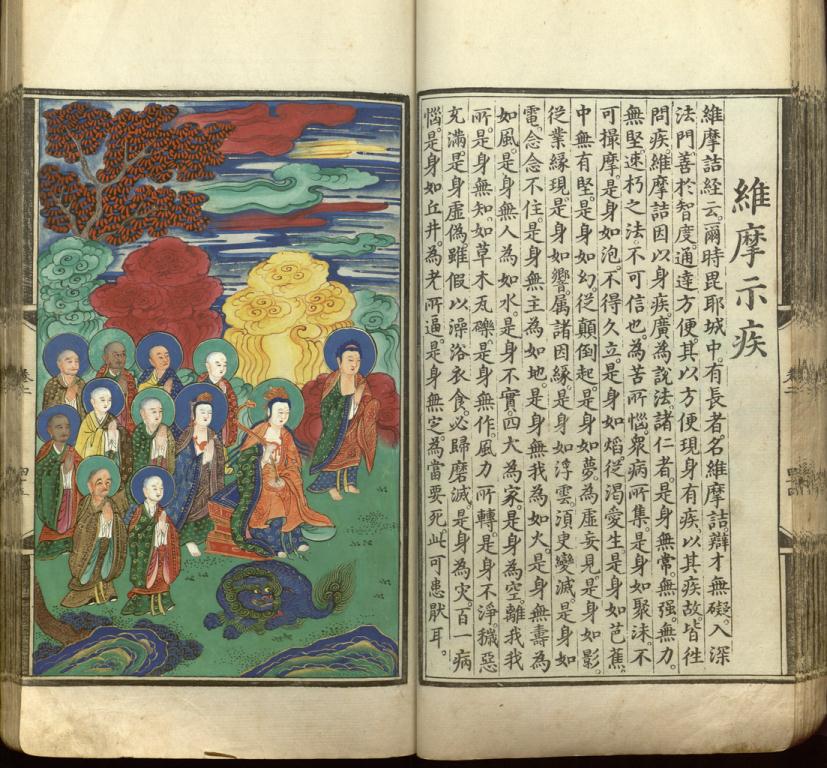 維摩示疾
維摩詰経云。爾時毘耶城中。有長者名維摩詰。辯才無礙。入深
法門。善於智度。通達方便。其以方便現身有疾。以其疾故。皆徃
問疾。維摩詰因以身疾。廣為說法。諸仁者。是身無常。無强。無力。
無堅。速朽之法。不可信也。為苦所惱。眾病所集。是身如聚沫。不
可撮摩。是身如泡。不得久立。是身如焰。從渴愛生。是身如芭蕉。
中無有堅。是身如幻。從顛倒起。是身如夢。為虛妄見。是身如影。
從業緣現。是身如響。属諸因緣。是身如浮雲。須臾變滅。是身如
電。念念不住。是身無主為如地。是身無我為如火。是身無壽為
如風。是身無人為如水。是身不實。四大為家。是身為空。離我我
所。是身無知。如草木瓦礫。是身無作。風力所轉。是身不淨。穢惡
充滿。是身虛偽。雖假以澡浴衣食。必歸磨滅。是身為灾。百一病
惱。是身如丘井。為老所逼。是身無定。為當要死。此可患厭耳。